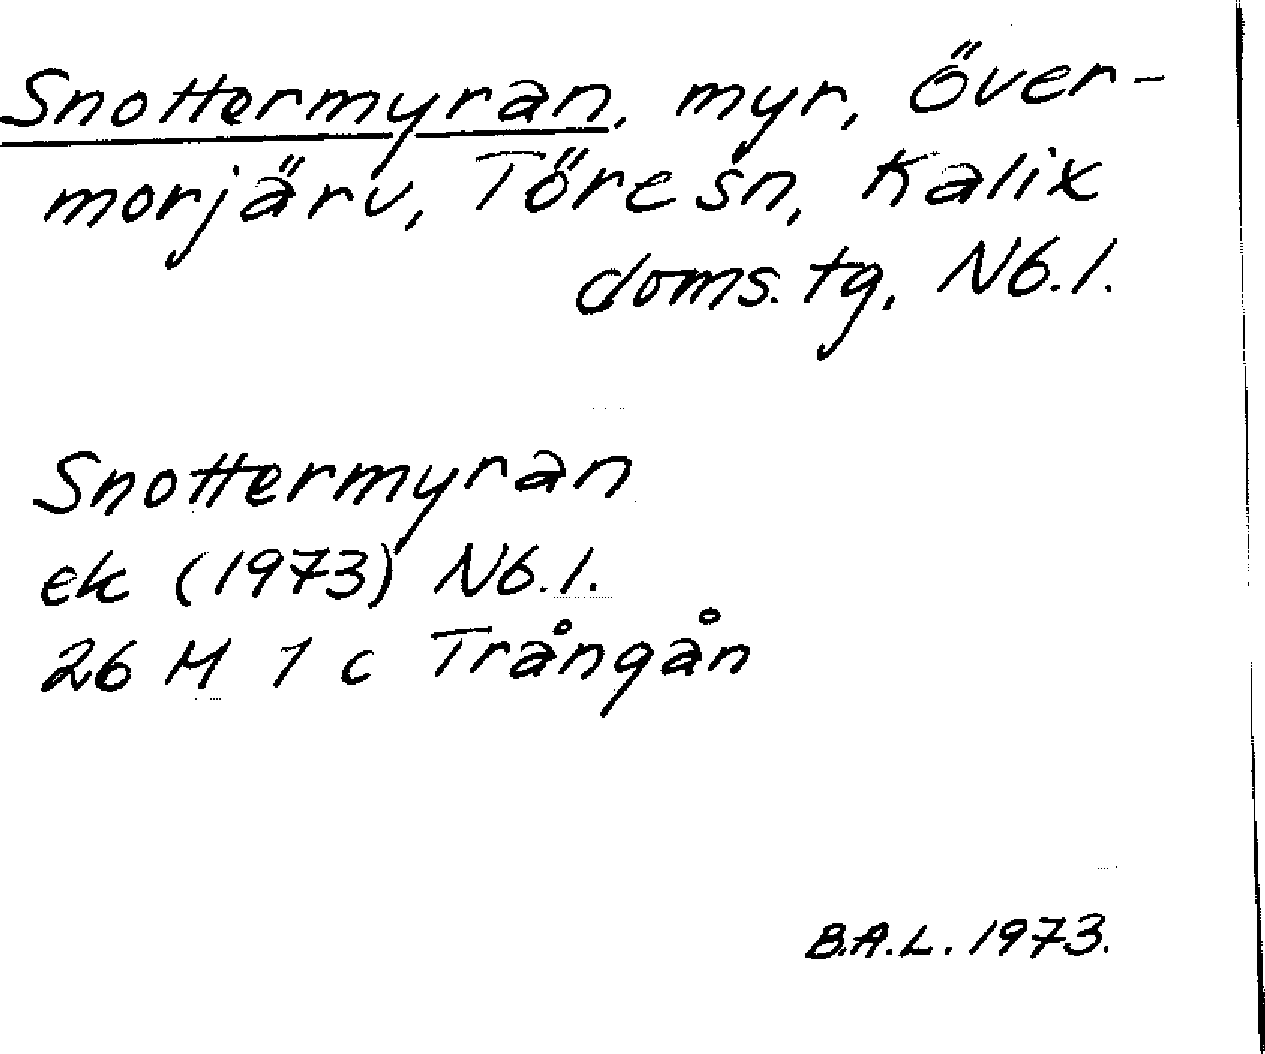 Snottermyran, myr, Över-
morjärv, Töre sn, Kalix
doms. tg, Nb. l.
Snottermyran
ek (1973) Nb. l.
26 M 1 c Trångån
B.A.L. 1973.